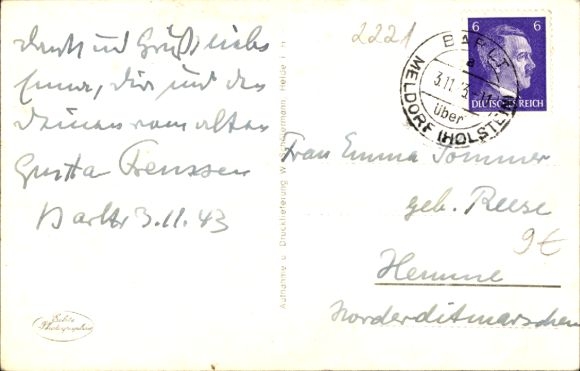 Dank und Gruß, liebe
Emma, dir und den
Deinen vom alten
Gustav Frenssen
Barlt 3.11.43
2221
6 6
DEUTSCHES REICH
BARLT
a
3.11.43
über
MELDORF (HOLSTEIN)
Frau Emma Sommer
geb. Reese
9€
Hemme
Norderditmarschen
Aufnahme u. Drucklieferung W. Heide i. H.
Echte
Photographie